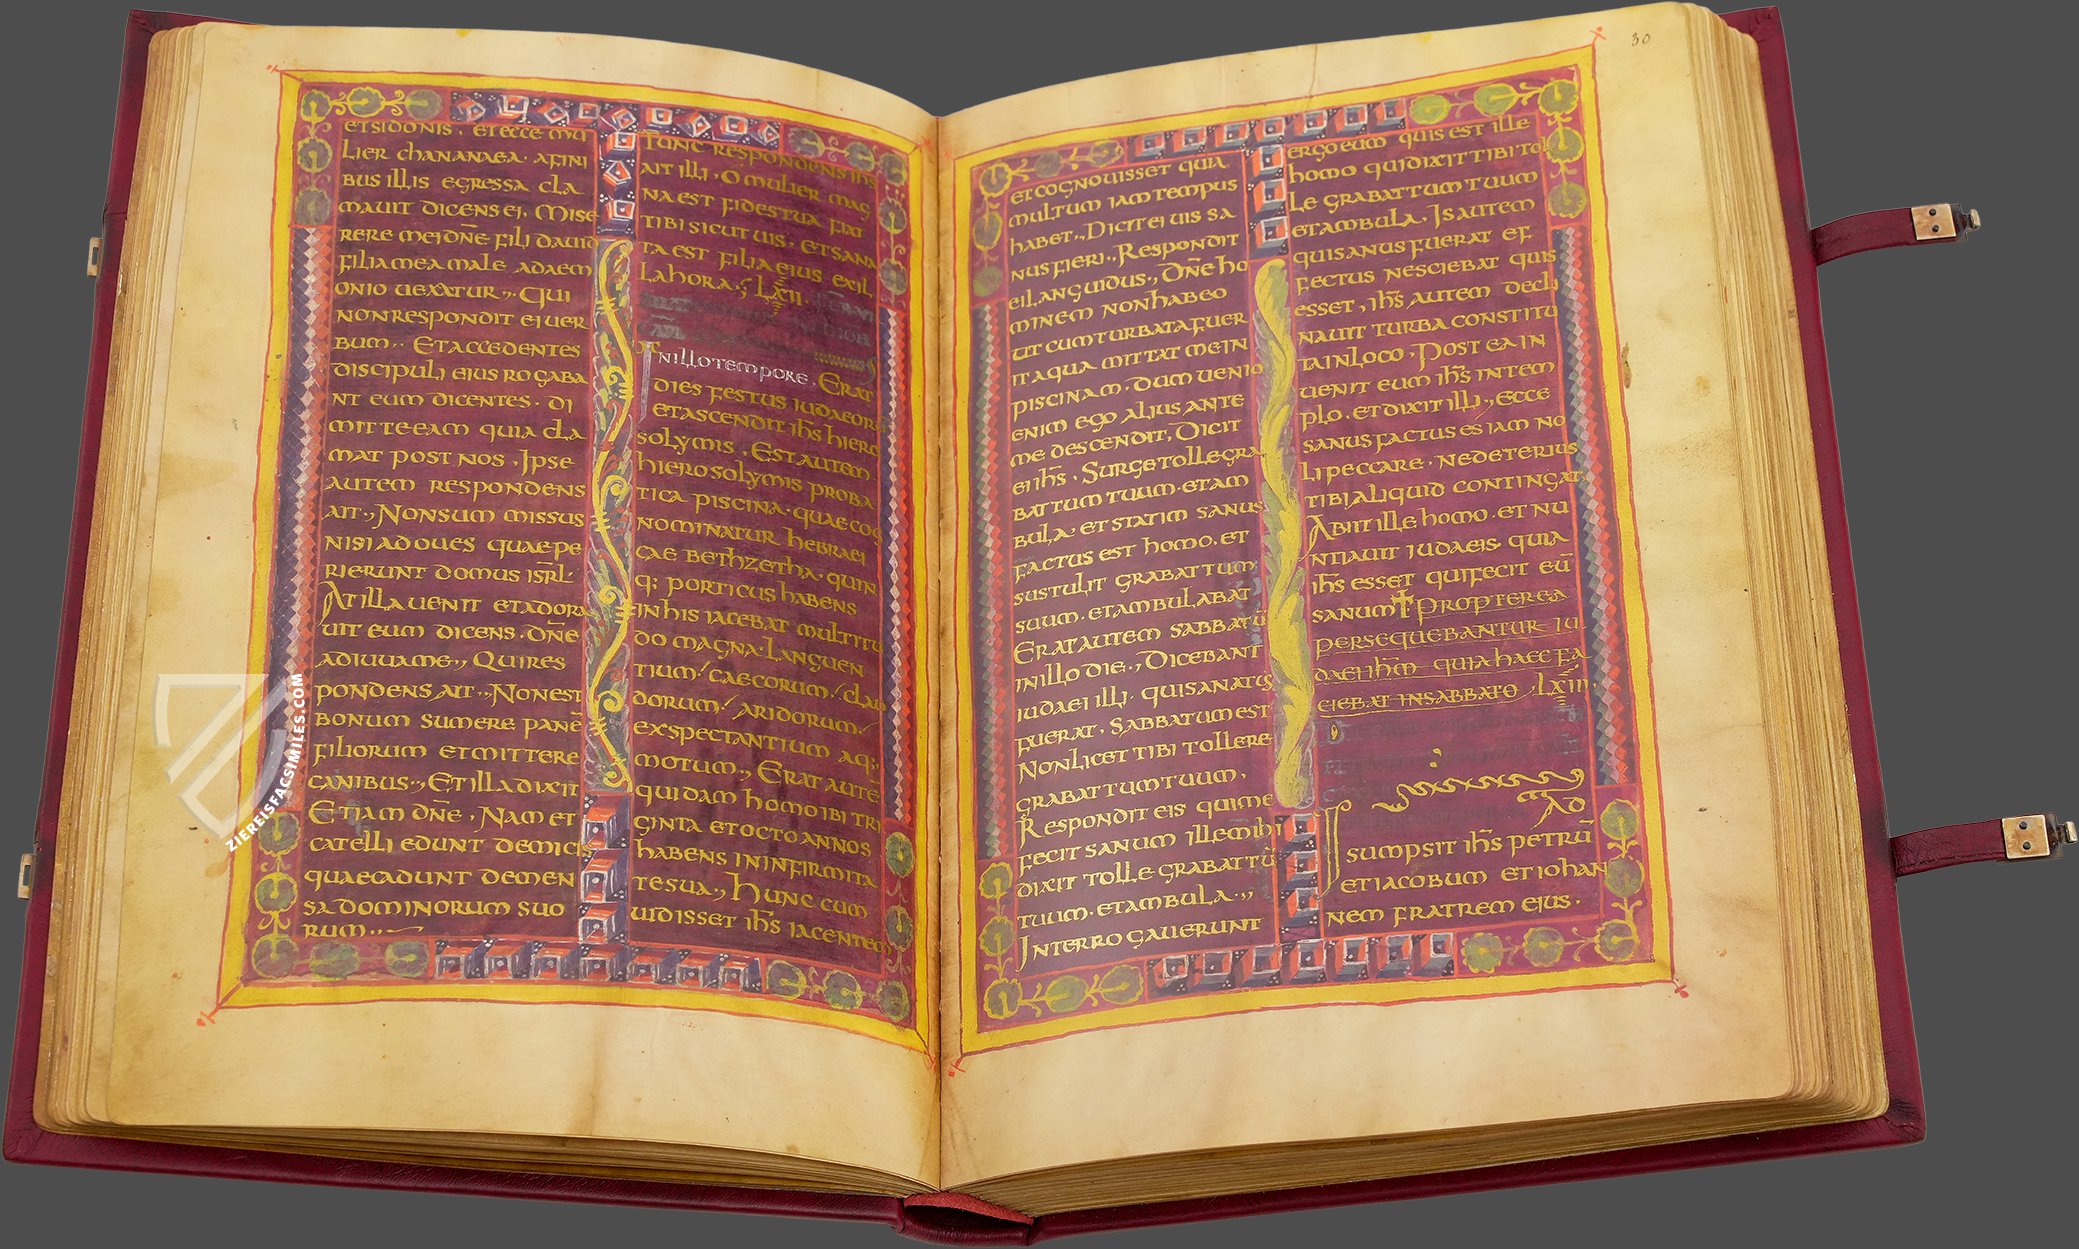 ET SIDONIS. ET ECCE MU
LIER CHANANAEA. A FINI
BUS ILLIS EGRESSA CLA
MAVIT DICENS EI. MISE
RERE MEI DÑE FILI DAUID
FILIA MEA MALE A DAEM
ONIO UEXATUR. QUI
NON RESPONDIT EI UER
BUM. ET ACCEDENTES
DISCIPULI EIUS ROGABA
NT EUM DICENTES. DI
MITTE EAM QUIA CLA
MAT POST NOS. IPSE
AUTEM RESPONDENS
AIT. NON SUM MISSUS
NISI AD OUES QUAE PE
RIERUNT DOMUS ISRL
AT ILLA UENIT ET ADORA
UIT EUM DICENS. DÑE
ADIUUA ME. QUI RES
PONDENS AIT. NON EST
BONUM SUMERE PANĒ
FILIORUM ET MITTERE
CANIBUS. ET ILLA DIXIT
ETIAM DÑE. NAM ET
CATELLI EDUNT DE MICIS
QUAE CADUNT DE MEN
SA DOMINORUM SUO
RUM.
TUNC RESPONDENS IHS
AIT ILLI. O MULIER MAG
NA EST FIDES TUA FIAT
TIBI SICUT UIS. ET SANA
TA EST FILIA EIUS EX IL
LA HORA. LXII.
IN ILLO TEMPORE. ERAT
DIES FESTUS IUDAEORŪ
ET ASCENDIT IHS HIERO
SOLYMIS. EST AUTEM
HIEROSOLYMIS PROBA
TICA PISCINA. QUAE COG
NOMINATUR HEBRAEI
CAE BETHZETHA. QUIN
Q; PORTICUS HABENS
IN HIS IACEBAT MULTITU
DO MAGNA. LANGUEN
TIUM. CAECORUM. CLAU
DORUM. ARIDORUM.
EXSPECTANTIUM AQ;
MOTUM. ERAT AUTĒ
QUIDAM HOMO IBI TRI
GINTA ET OCTO ANNOS
HABENS IN INFIRMITA
TE SUA. HUNC CUM
UIDISSET IHS IACENTEM
30
ET COGNOUISSET QUIA
MULTUM IAM TEMPUS
HABET. DICIT EI UIS SA
NUS FIERI. RESPONDIT
EI LANGUIDUS. DÑE HO
MINEM NON HABEO
UT CUM TURBATA FUER
IT AQUA MITTAT ME IN
PISCINAM. DUM UENIO
ENIM EGO ALIUS ANTE
ME DESCENDIT. DICIT
EI IHS. SURGE TOLLE GRA
BATTUM TUUM. ET AM
BULA. ET STATIM SANUS
FACTUS EST HOMO. ET
SUSTULIT GRABATTUM
SUUM. ET AMBULABAT
ERAT AUTEM SABBATŪ
IN ILLO DIE. DICEBANT
IUDAEI ILLI. QUI SANATUS
FUERAT. SABBATUM EST
NON LICET TIBI TOLLERE
GRABATTUM TUUM.
RESPONDIT EIS QUI ME
FECIT SANUM ILLE MIHI
DIXIT TOLLE GRABATTŪ
TUUM. ET AMBULA.
INTERROGAUERUNT
ERGO EUM QUIS EST ILLE
HOMO QUI DIXIT TIBI TOL
LE GRABATTUM TUUM
ET AMBULA. IS AUTEM
QUI SANUS FUERAT EF
FECTUS NESCIEBAT QUIS
ESSET. IHS AUTEM DECLI
NAUIT TURBA CONSTITU
TA IN LOCO. POST EA IN
UENIT EUM IHS IN TEM
PLO. ET DIXIT ILLI. ECCE
SANUS FACTUS ES IAM NO
LI PECCARE. NE DETERIUS
TIBI ALIQUID CONTINGAT
ABIIT ILLE HOMO. ET NU
NTIAUIT IUDAEIS. QUIA
IHS ESSET QUI FECIT EŪ
SANUM PROPTEREA
PERSEQUEBANTUR IU
DAEI IHM QUIA HAEC FA
CIEBAT IN SABBATO. LXIII.
AD
SUMPSIT IHS PETRŪ
ET IACOBUM ET IOHAN
NEM FRATREM EIUS.
ZIEREISFACSIMILES.COM